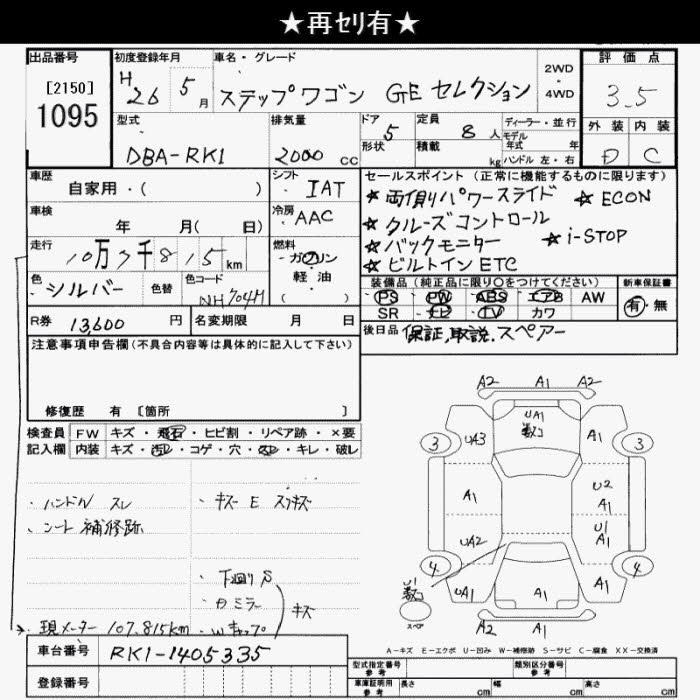 ★再ｾﾘ有★
出品番号 初度登録年月 車名・グレード 2WD・4WD 評価点
[2150]
1095
H26 5月 ステップワゴン GE セレクション 3.5
型式 排気量 ドア 定員 ディーラー・並行 外装 内装
DBA-RK1 2000 cc 5 8人 モデル年式 年 D C
形状 積載 kg ハンドル 左・右
車歴 シフト セールスポイント（正常に機能するものに限ります）
自家用・（ ） IAT ☆両側パワースライド ☆ECON
車検 冷房 ☆クルーズコントロール
年 月（ 日） AAC ☆バックモニター ☆i-STOP
走行 燃料 ☆ビルトインETC
10万7千815km ガソリン
軽・油
（ ）
色 色替 色コード 装備品（純正品に限り○をつけてください） 新車保証書
シルバー NH704M PS PW ABS エアB AW 有・無
SR ナビ TV カワ
R券 13600円 名変期限 月 日 後日品 保証,取説.スペアー
注意事項申告欄（不具合内容等は具体的に記入して下さい）
修復歴 有 〔箇所 〕
検査員 FW キズ・飛石・ヒビ割・リペア跡・×要
記入欄 内装 キズ・汚レ・コゲ・穴・スレ・キレ・破レ
・ハンドル スレ
・シート 補修跡
・キズ E スリキズ
・下廻り S
・カミラー
・Wキャップ
キズ
・現メーター 107,815km
A2 A1 A2
UA1
数コ
3 UA3 A1 3
A1 U2
A1
UA2 U1
A1
4 UA1 A1 A1 4
U1
数コ
スペア
A2 A1
A-キズ E-エクボ U-凹み W-補修跡 S-サビ C-腐食 XX-交換済
車台番号 RK1-1405335
登録番号
型式指定番号 参考 類別区分番号 参考
車庫証明用 参考 長さ cm 幅 cm 高さ cm